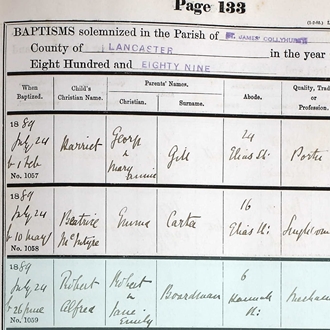 Page 133
BAPTISMS solemnized in the Parish of ST. JAMES' COLLYHURST
County of LANCASTER in the year
Eight Hundred and EIGHTY NINE
When Baptized.
Child's Christian Name.
Parents' Names.
Christian.
Surname.
Abode.
Quality, Trad
or Profession.
1889
July 24
b 1 Feb
No. 1057
Harriet
George
&
Mary
Gill
24
Elias St.
Porter
1889
July 24
b 10 May
No. 1058
Beatrice
McIntyre
Emma
Carter
16
Elias St.
1889
July 24
b 26 June
No. 1059
Robert
Alfred
Robert
&
Jane
Emily
Boardman
6
Hannah
St.